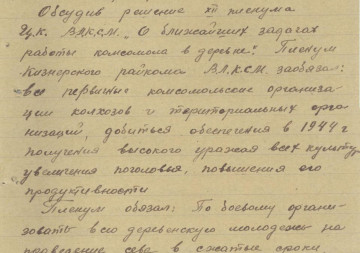 Обсудив решение XII пленума
Ц.К. ВЛКСМ. О ближайших задачах
работы комсомола в деревне". Пленум
Кизнерского райкома ВЛ.КСМ. заобязал:
все первичные комсомольские организа-
ции колхозов и территориальных орга-
низаций, добиться обеспечения в 1944 г
получения высокого урожая всех культур
увеличения поголовья, повышения его
продуктивности
Пленум обязал: По боевому органи-
зовать всю деревенскую молодежь на
проведение сева в сжатые сроки